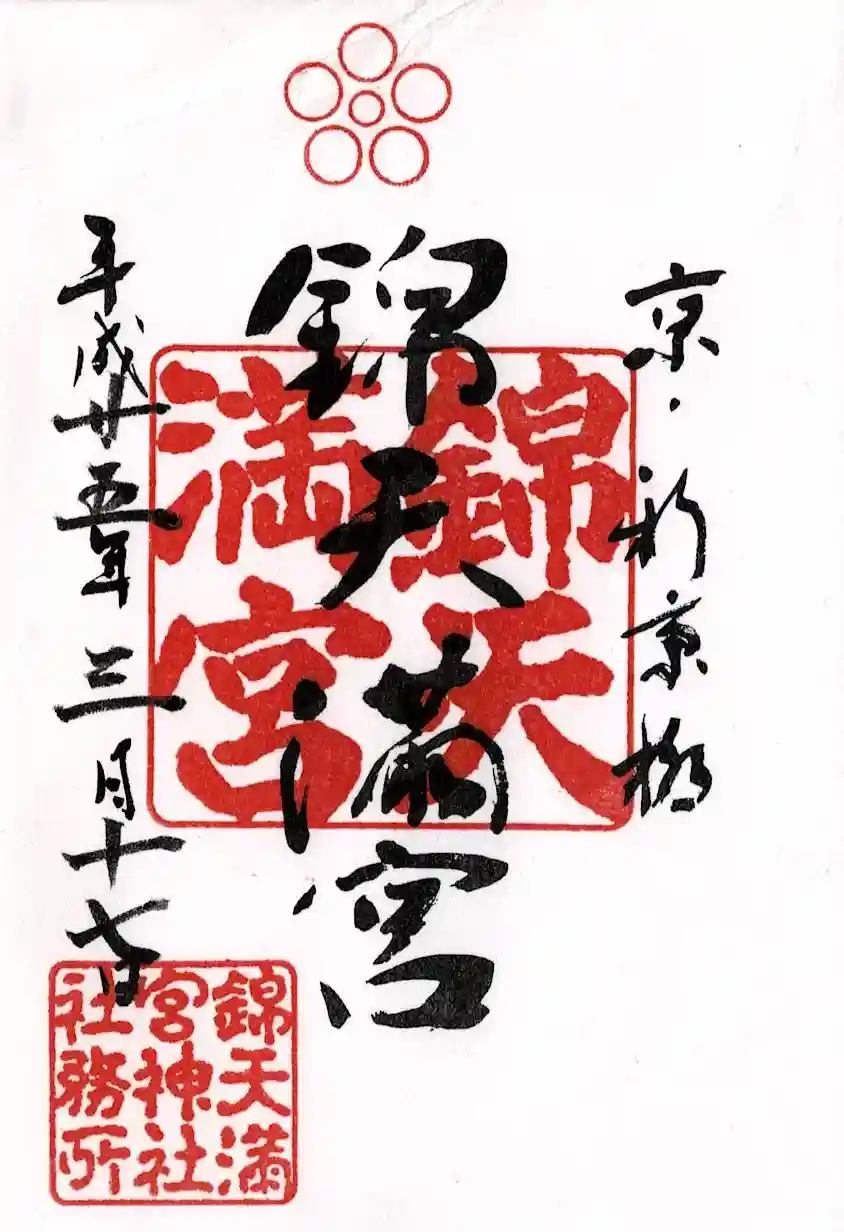 京・新京極
錦天満宮
平成廿五年三月十七日
錦天
満宮
錦天満
宮神社
社務所